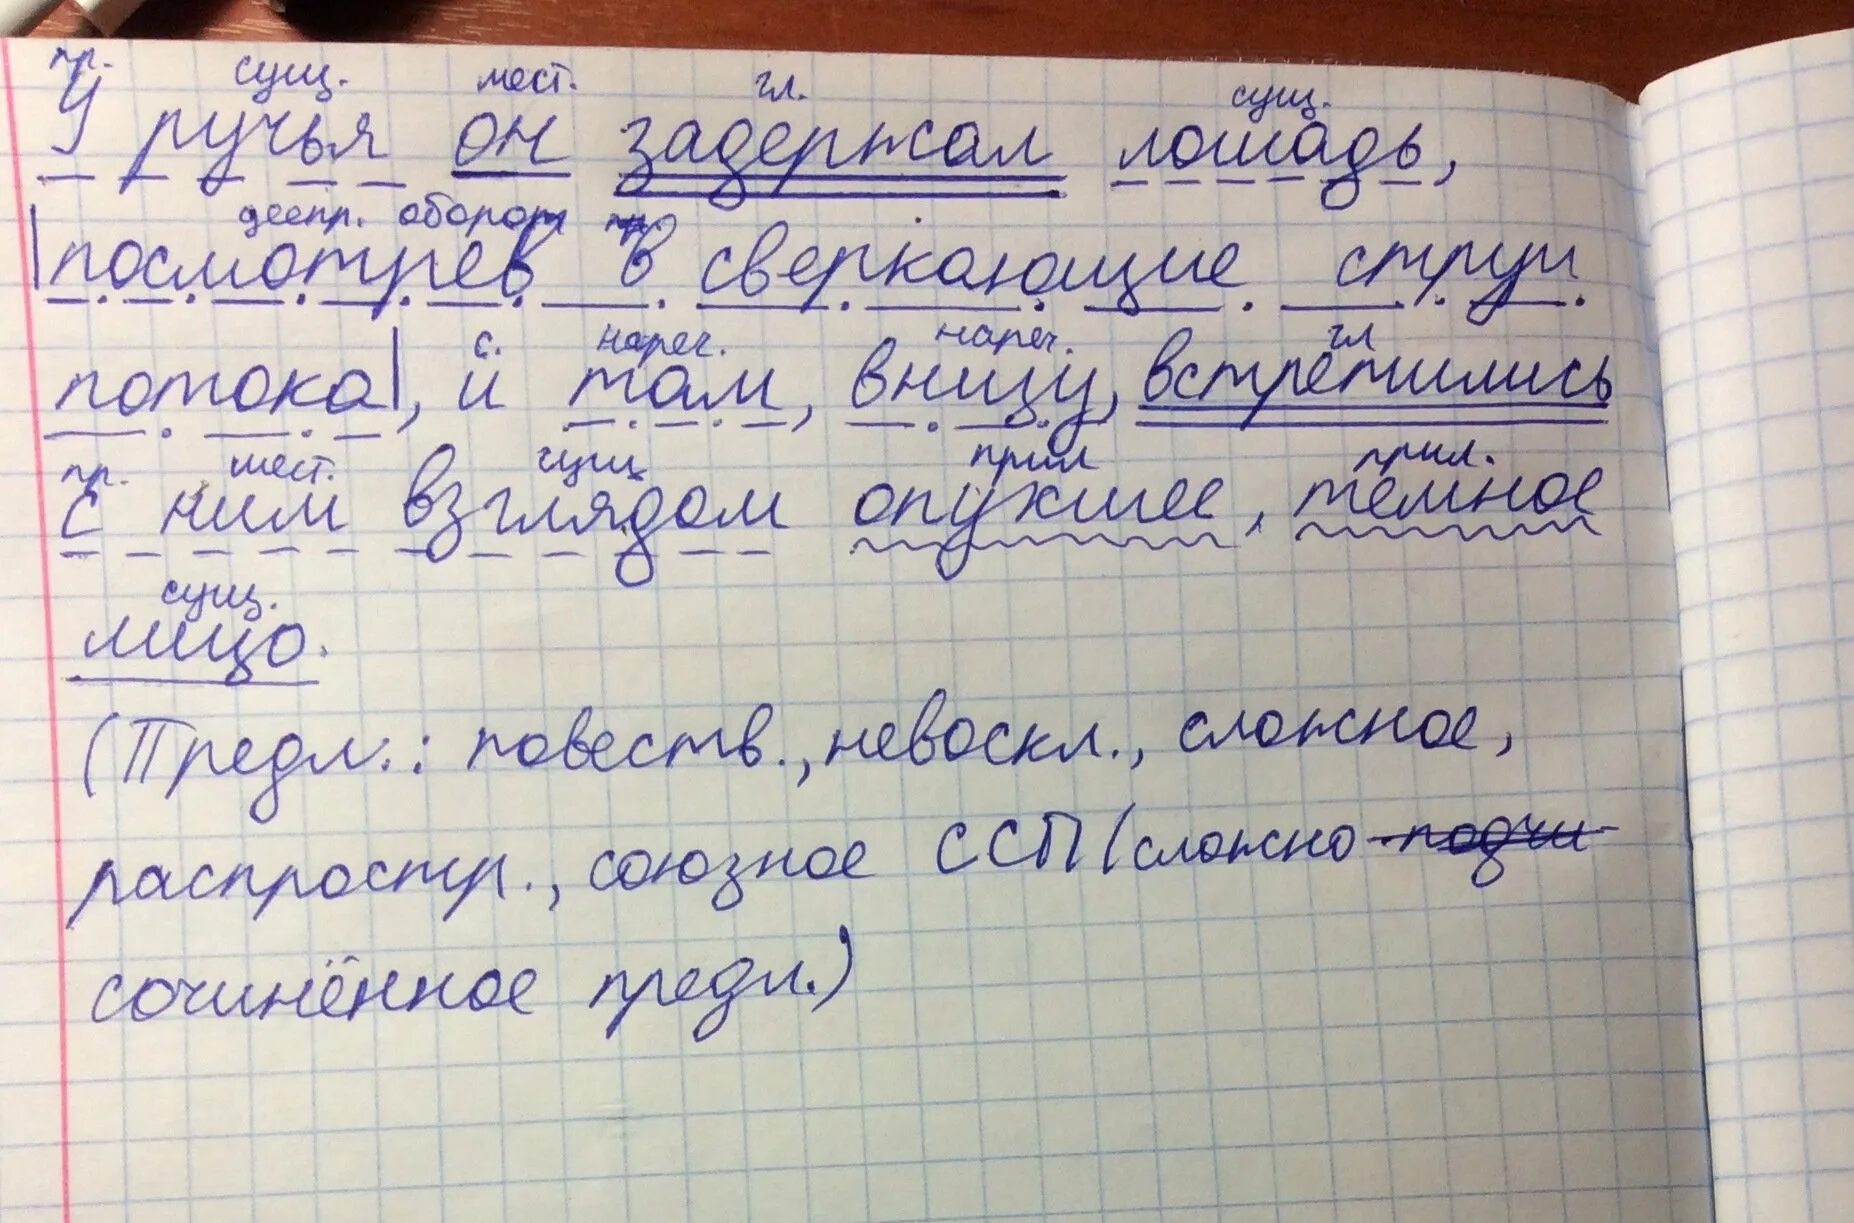 пр. сущ. мест. гл. сущ.
У ручья он задержал лошадь,
деепр. оборот пр.
|посмотрев в сверкающие струи
с. нареч. нареч. гл
потока|, и там, внизу, встретились
пр. мест. сущ прил прил.
с ним взглядом опухшее, темное
сущ.
лицо.
(Предл.: повеств., невоскл., сложное,
распростр., союзное ССП (сложно подчи
сочинённое предл.)